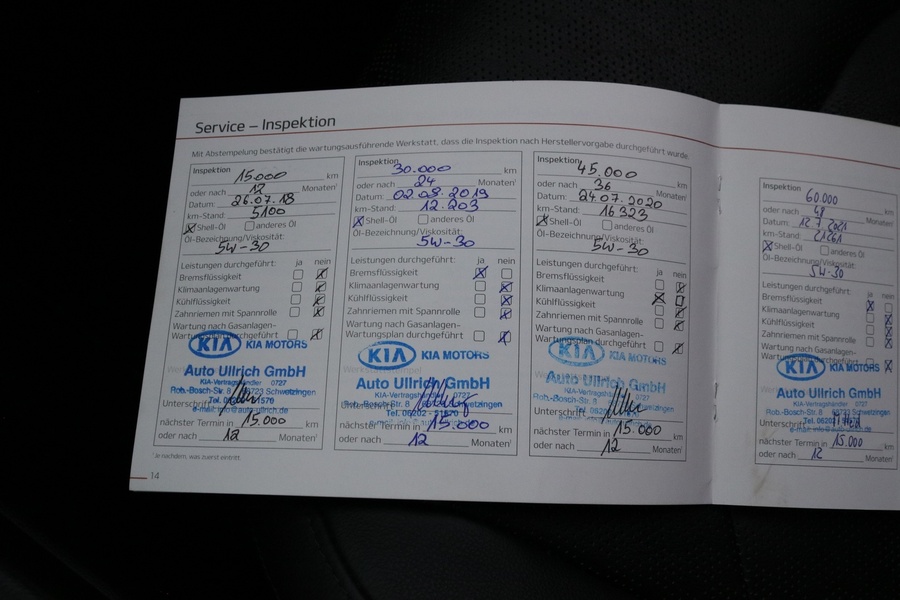 Service – Inspektion
Mit Abstempelung bestätigt die wartungsausführende Werkstatt, dass die Inspektion nach Herstellervorgabe durchgeführt wurde.
Inspektion 15.000 km
oder nach 12 Monaten¹
Datum: 26.07.18
km-Stand: 5100
Shell-Öl anderes Öl
Öl-Bezeichnung/Viskosität:
5W-30
Leistungen durchgeführt: ja nein
Bremsflüssigkeit
Klimaanlagenwartung
Kühlflüssigkeit
Zahnriemen mit Spannrolle
Wartung nach Gasanlagen-
Wartungsplan durchgeführt
KIA KIA MOTORS
Auto Ullrich GmbH
KIA-Vertragshändler 0727
Rob.-Bosch-Str. 8 68723 Schwetzingen
Unterschrift
e-mail: info@auto-ullrich.de
nächster Termin in 15.000 km
oder nach 12 Monaten¹
Inspektion 30.000 km
oder nach 24 Monaten¹
Datum: 02.08.2019
km-Stand: 12.203
Shell-Öl anderes Öl
Öl-Bezeichnung/Viskosität:
5W-30
Leistungen durchgeführt: ja nein
Bremsflüssigkeit
Klimaanlagenwartung
Kühlflüssigkeit
Zahnriemen mit Spannrolle
Wartung nach Gasanlagen-
Wartungsplan durchgeführt
KIA KIA MOTORS
Auto Ullrich GmbH
KIA-Vertragshändler 0727
Rob.-Bosch-Str. 8
Tel. 06202 - 51570
nächster Termin in 15.000 km
oder nach 12 Monaten¹
Inspektion 45.000 km
oder nach 36 Monaten¹
Datum: 24.07.2020
km-Stand: 16323
Shell-Öl anderes Öl
Öl-Bezeichnung/Viskosität:
5W-30
Leistungen durchgeführt: ja nein
Bremsflüssigkeit
Klimaanlagenwartung
Kühlflüssigkeit
Zahnriemen mit Spannrolle
Wartung nach Gasanlagen-
Wartungsplan durchgeführt
KIA KIA MOTORS
Auto Ullrich GmbH
KIA-Vertragshändler 0727
Rob.-Bosch-Str. 8
Unterschrift
nächster Termin in 15.000 km
oder nach 12 Monaten¹
Inspektion 60.000 km
oder nach 48 Monaten¹
Datum: 12.7.2021
km-Stand: 21261
Shell-Öl anderes Öl
Öl-Bezeichnung/Viskosität:
5W-30
Leistungen durchgeführt: ja nein
Bremsflüssigkeit
Klimaanlagenwartung
Kühlflüssigkeit
Zahnriemen mit Spannrolle
Wartung nach Gasanlagen-
KIA KIA MOTORS
Auto Ullrich GmbH
KIA-Vertragshändler 0727
Rob.-Bosch-Str. 8 68723 Schwetzingen
Unterschrift
nächster Termin in 15.000 km
oder nach 12 Monaten¹
¹Je nachdem, was zuerst eintritt.
14